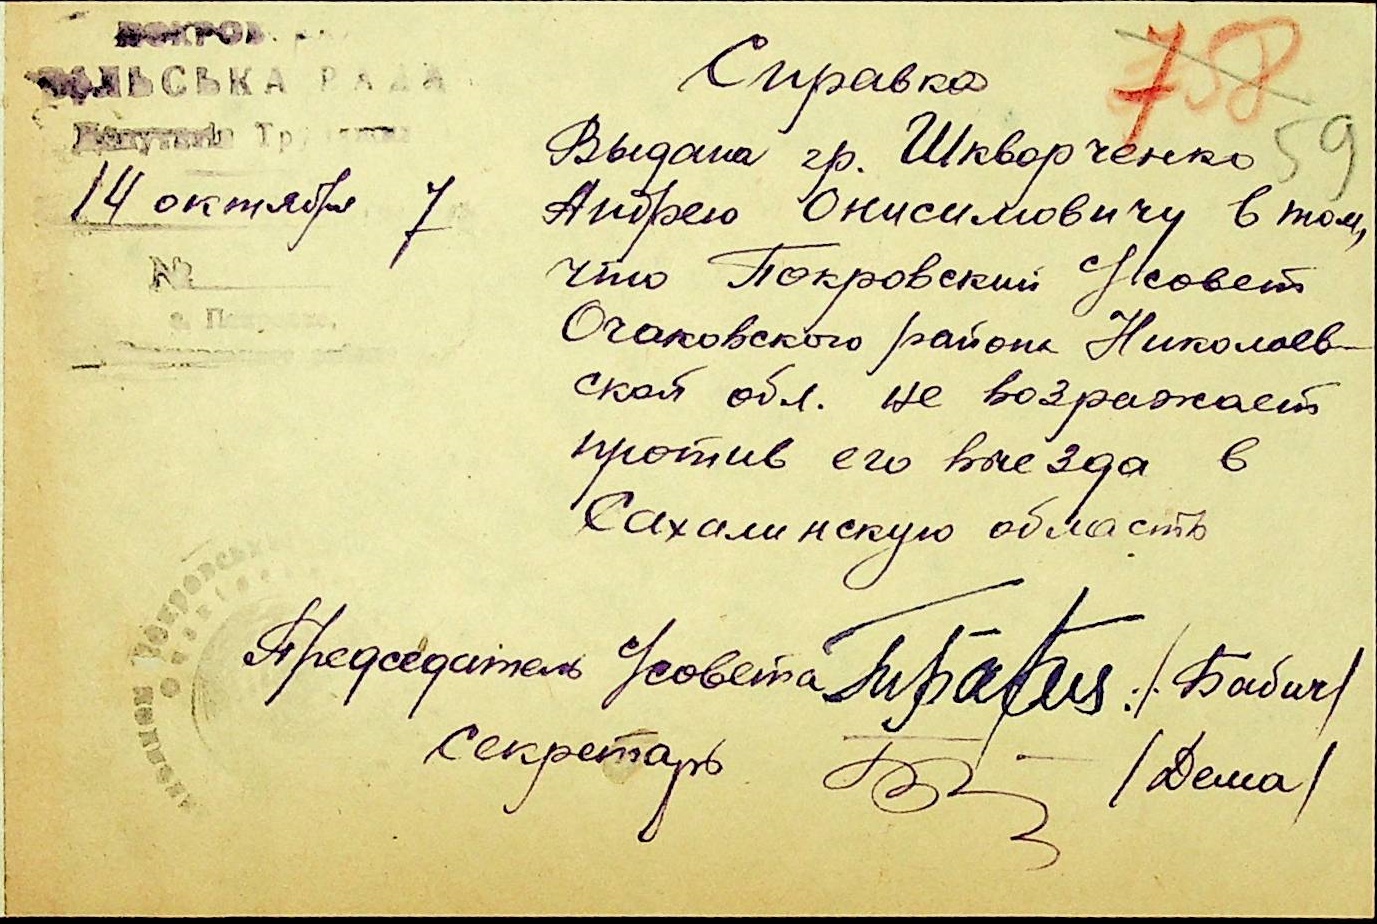 СІЛЬСЬКА РАДА
Депутатів Трудящих
14 октября 7
№
с. Покровка,
Справка
758
59
Выдана гр. Шкворченко
Андрею Онисимовичу в том,
что Покровский с/совет
Очаковского района Николаев-
ской обл. не возражает
против его выезда в
Сахалинскую область
Председатель с/совета /Бабич/
Секретарь /Дема/